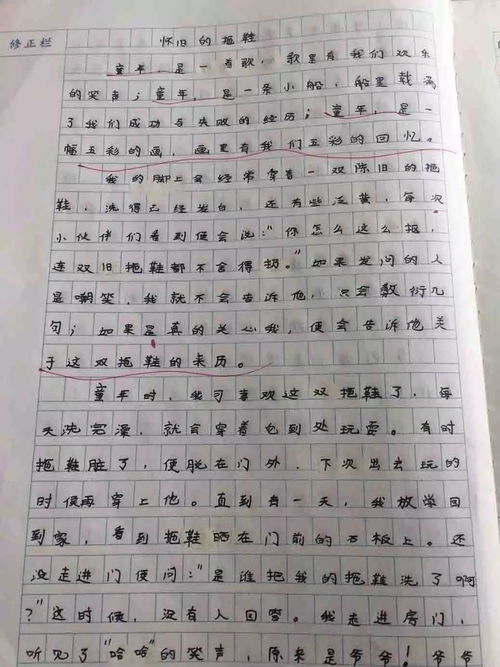 修正栏
怀旧的拖鞋
童年,是一首歌,歌里有我们欢乐
的笑声;童年,是一条小船,船里载满
了我们成功与失败的经历;童年,是一
幅五彩的画,画里有我们五彩的回忆。
我的脚上会经常穿着一双陈旧的拖
鞋,洗得已经发白,还有些泛黄,每次
小伙伴们看到便会说:"你怎么这么抠,
连双旧拖鞋都不舍得扔。"如果发问的人
是嘲笑,我就不会告诉他,只会敷衍几
句;如果是真的关心我,便会告诉他关
于这双拖鞋的来历。
童年时,我可喜欢这双拖鞋了,每
天洗完澡,就会穿着它到处玩耍。有时
拖鞋脏了,便脱在门外,下次出去玩的
时候再穿上他。直到有一天,我放学回
到家,看到拖鞋晒在门前的石板上。还
没走进门便问:"是谁把我的拖鞋洗了啊
?"这时候,没有人回答。我走进房门,
听见了"哈哈"的笑声,原来是爷爷!爷爷